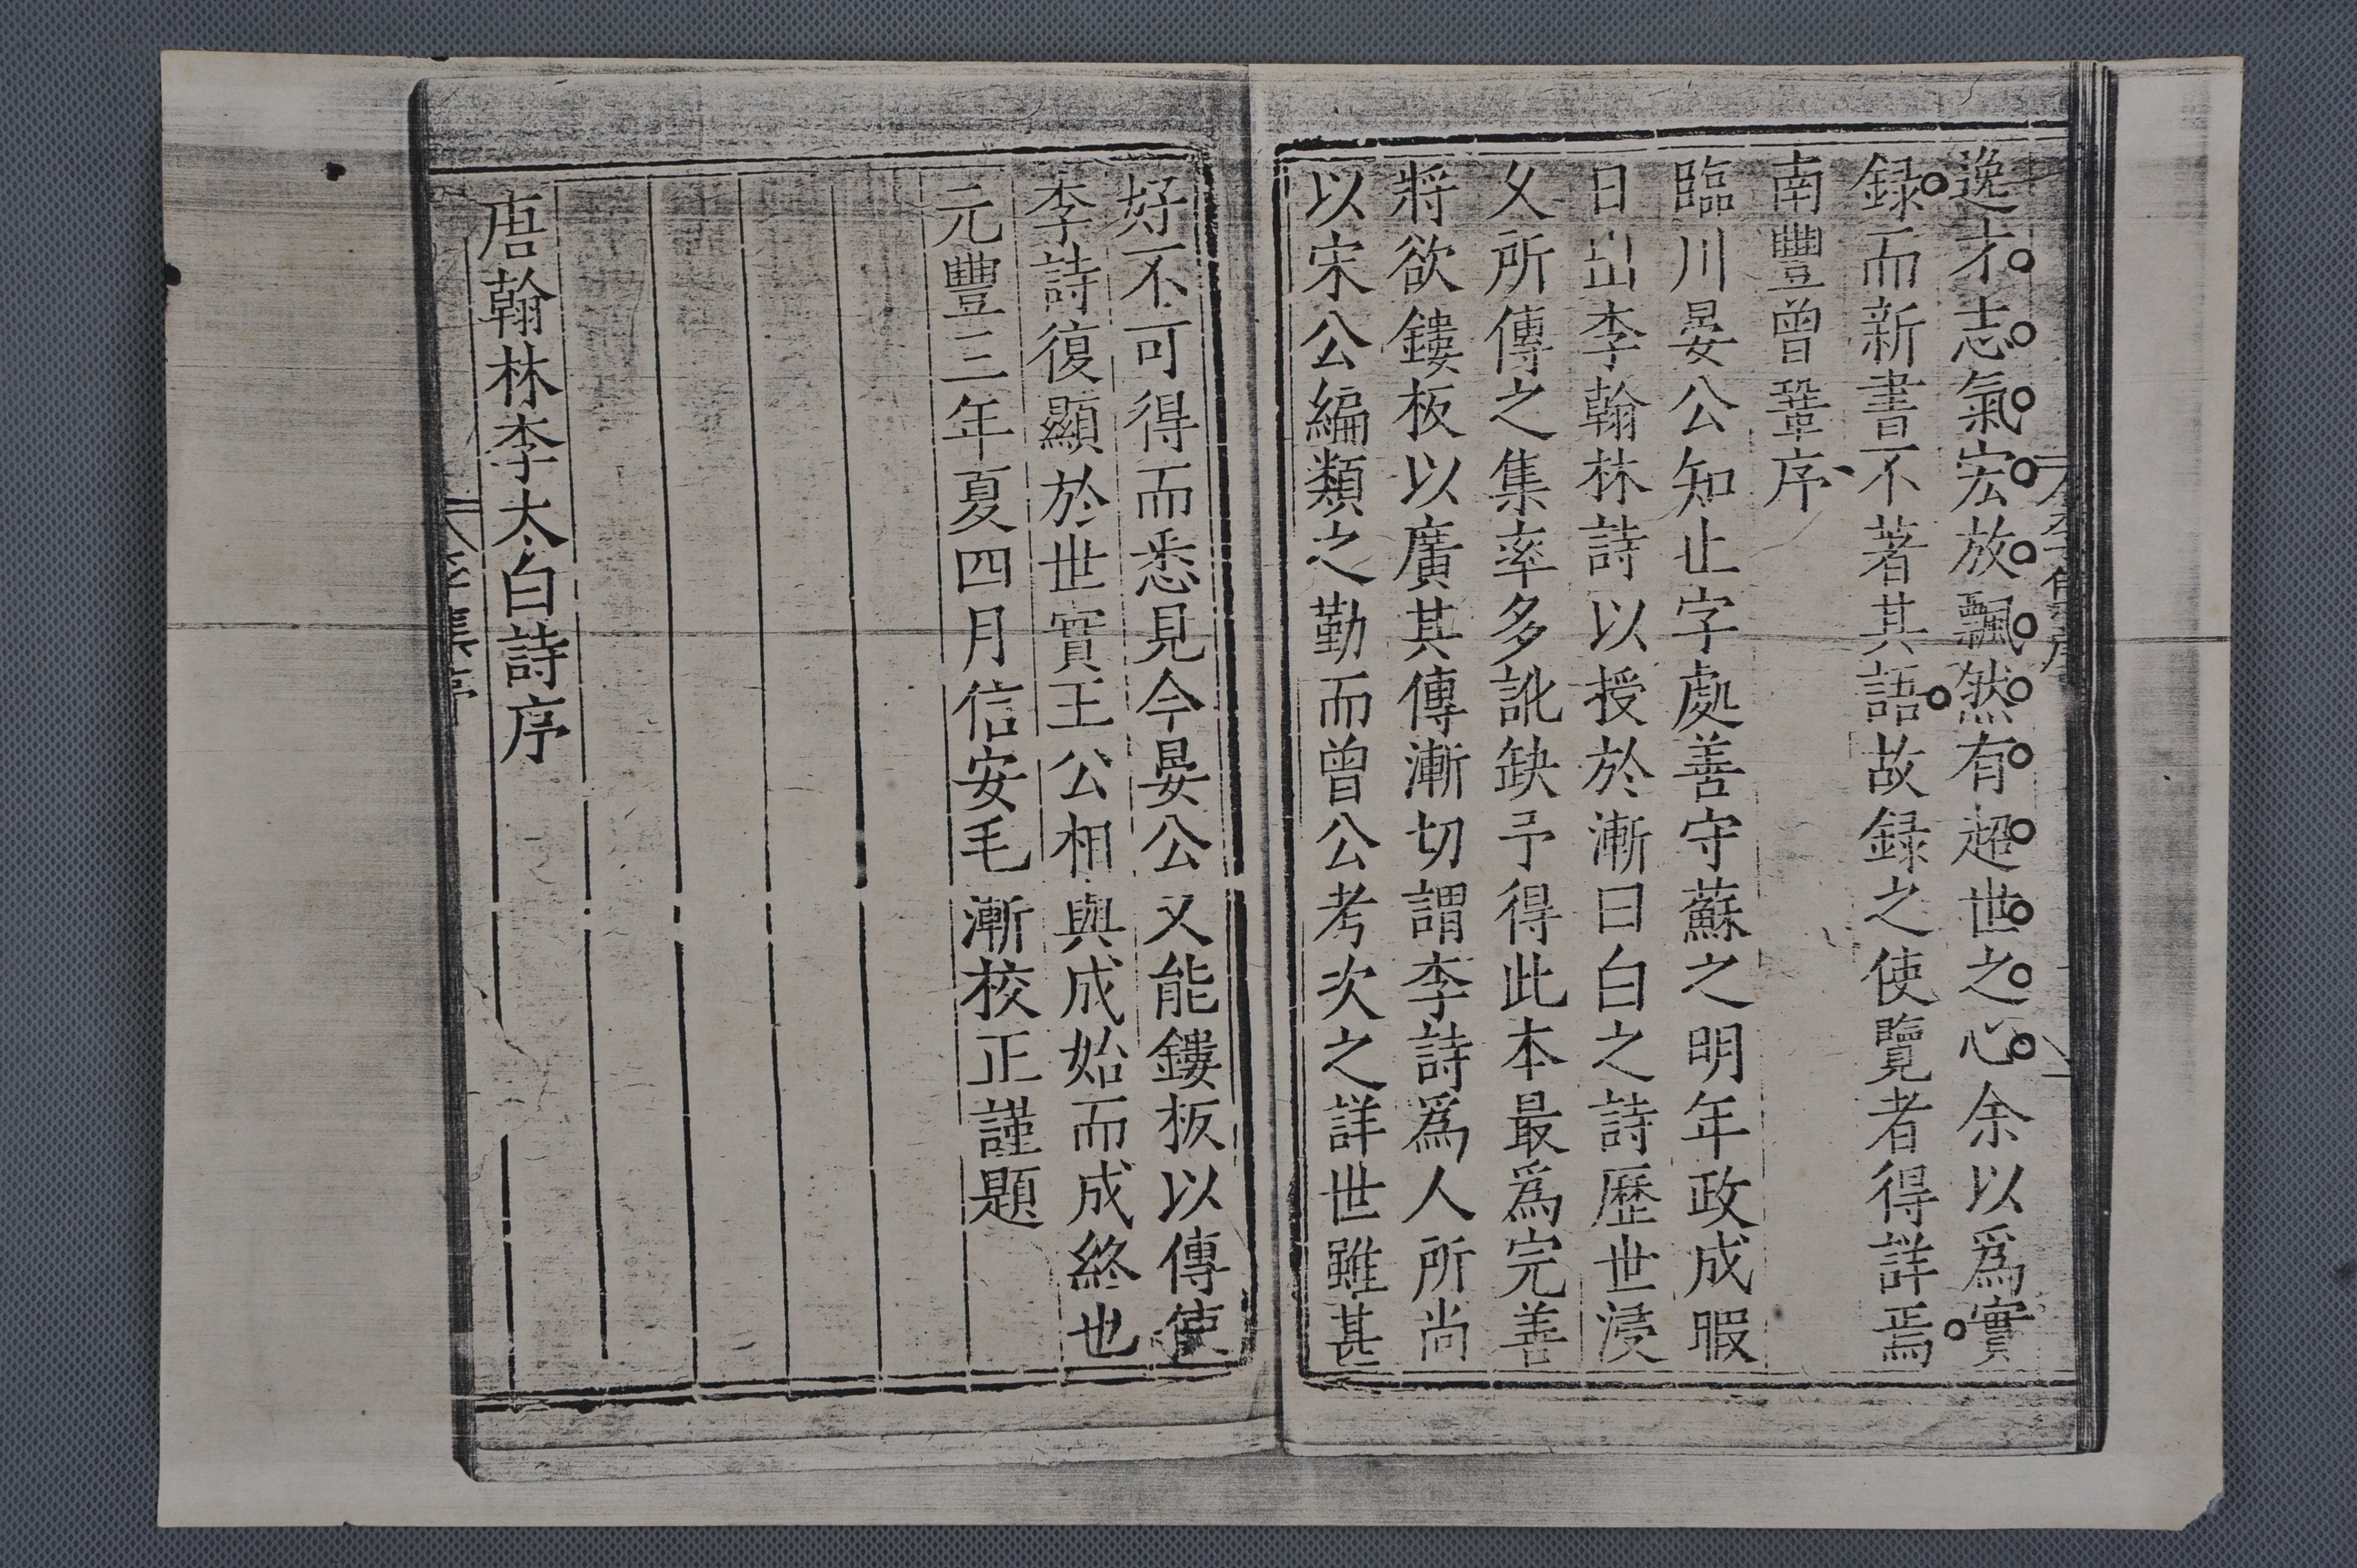 逸才志氣宏放飄然有超世之心余以爲實
録而新書不著其語故録之使覽者得詳焉
南豐曾鞏序
臨川晏公知止字處善守蘇之明年政成暇
日出李翰林詩以授於漸曰白之詩歷世浸
乆所傳之集率多訛缺予得此本最爲完善
將欲鏤板以廣其傳漸切謂李詩爲人所尚
以宋公編類之勤而曾公考次之詳世雖甚
好不可得而悉見今晏公又能鏤板以傳使
李詩復顯於世實王公相與成始而成終也
元豐三年夏四月信安毛漸校正謹題
唐翰林李太白詩序